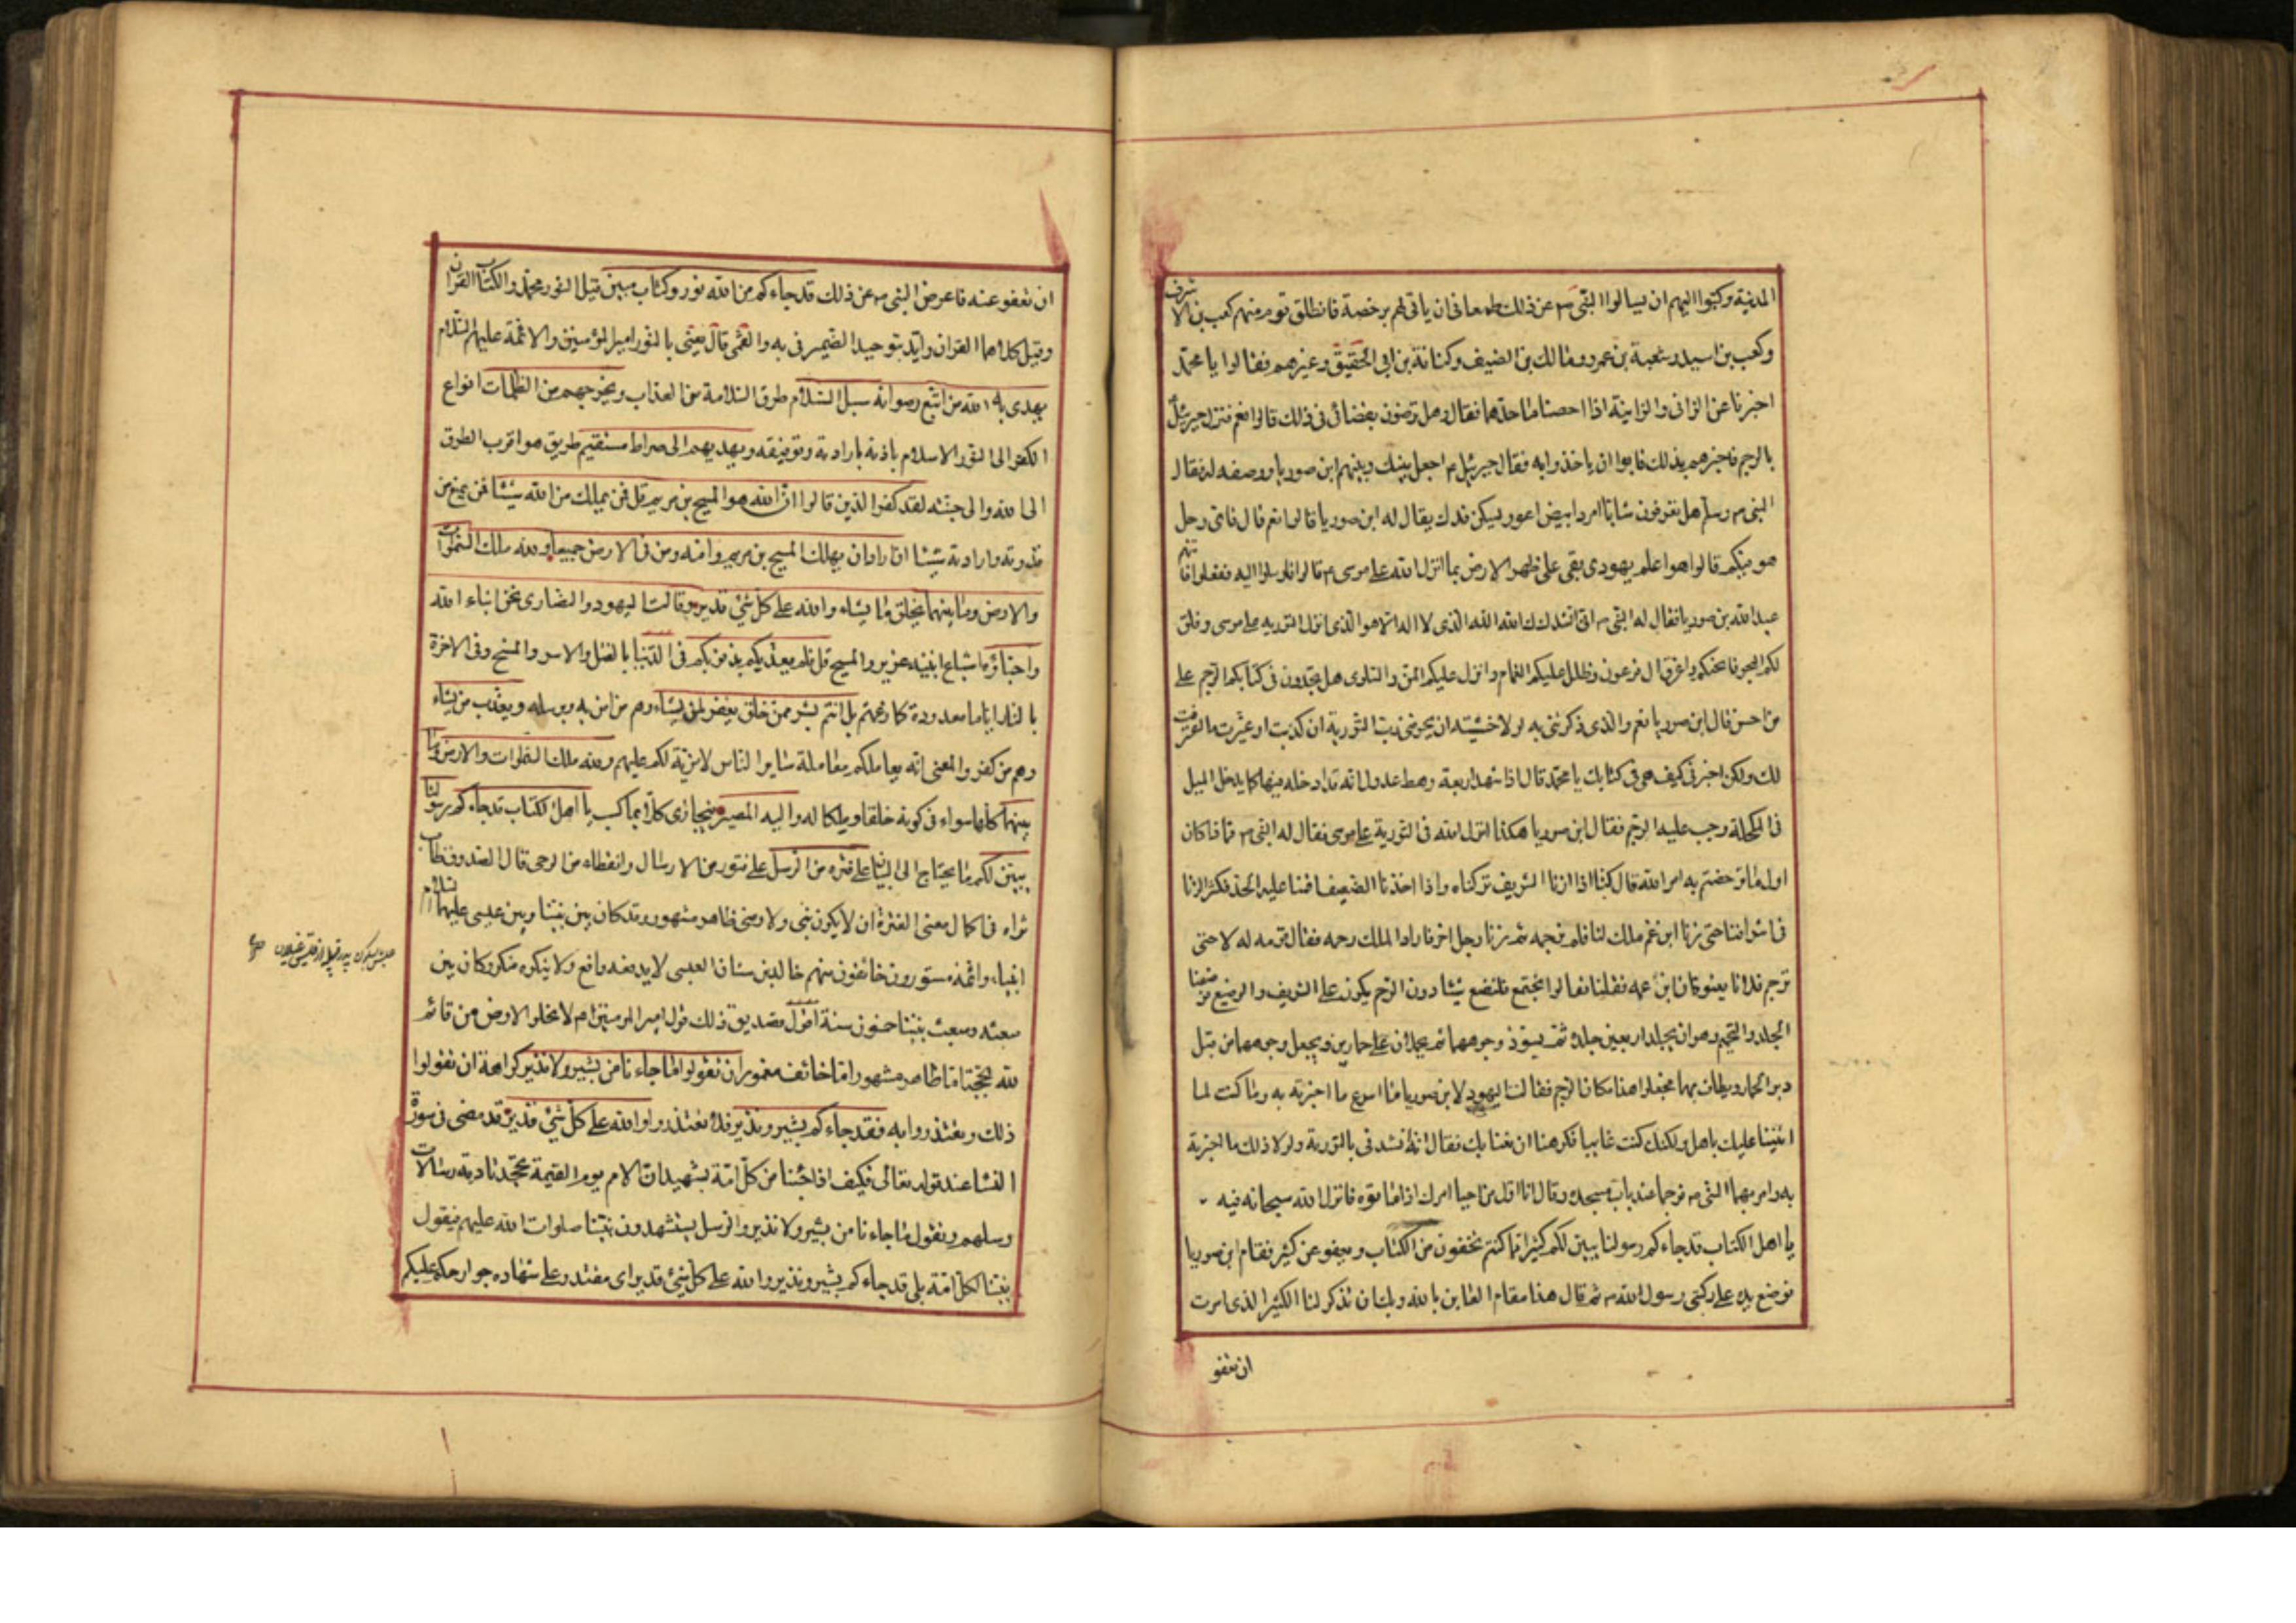 المدينة وكتبوا اليهم ان يسالوا النبي ص عن ذلك طمعا في ان ياتي لهم برخصة فانطلق قوم منهم كعب بن الاشرف
وكعب بن اسيد وشعبة بن عمرو ومالك بن الضيف وكنانة بن ابي الحقيق وغيرهم فقالوا يا محمد
اخبرنا عن الزاني والزانية اذا احصنا ما حدهما فقال وهل ترضون بقضائي في ذلك قالوا نعم فنزل جبرئيل
بالرجم فاخبرهم بذلك فابوا ان ياخذوا به فقال جبرئيل م اجعل بينك وبينهم ابن صوريا ووصفه له فقال
النبي م وسلم هل تعرفون شابا امرد ابيض اعور يسكن فدك يقال له ابن صوريا قالوا نعم قال فاي رجل
هو فيكم قالوا هو اعلم يهودي بقي على ظهر الارض بما انزل الله على موسى م قال فارسلوا اليه ففعلوا فاتاهم
عبد الله بن صوريا فقال له النبي م اني انشدك الله الذي لا اله الا هو الذي انزل التورية على موسى وفلق
لكم البحر فانجيكم واغرق ال فرعون وظلل عليكم الغمام وانزل عليكم المن والسلوى هل تجدون في كتابكم الرجم على
من احصن قال ابن صوريا نعم والذي ذكرتني به لولا خشيته ان يحرقني رب التورية ان كذبت او غيرت ما اعترفت
لك ولكن اخبرني كيف هي في كتابك يا محمد قال اذا شهد اربعة رهط عدول انه قد ادخله فيها كما يدخل الميل
في المكحلة وجب عليه الرجم فقال ابن صوريا هكذا انزل الله في التورية على موسى فقال له النبي م فماذا كان
اول ما ترخصتم به امر الله قال كنا اذا زنا الشريف تركناه واذا اخذنا الضعيف اقمنا عليه الحد فكثر الزنا
في اشرافنا حتى زنا ابن عم ملك لنا فلم نرجمه ثم زنا رجل اخر فاراد الملك رجمه فقال قومه له لا حتى
ترجم فلانا يعنون ابن عمه فقلنا تعالوا نجتمع فلنضع شيئا دون الرجم يكون على الشريف والوضيع فوضعنا
الجلد والتحميم وهو ان يجلد اربعين جلدة ثم يسود وجوههما ثم يحملان على حمارين ويجعل وجوههما من قبل
دبر الحمار ويطاف بهما فجعلوا هذا مكان الرجم فقالت اليهود لابن صوريا ما اسرع ما اخبرته به وما كنت لما
اثنينا عليك باهل ولكنك كنت غايبا فكرهنا ان نغتابك فقال انه نشدني بالتورية ولولا ذلك ما اخبرته
به وامر بهما النبي م فرجما عند باب مسجده وقال انا اول من احيا امرك اذ اماتوه فانزل الله سبحانه فيه
يا اهل الكتاب قد جاءكم رسولنا يبين لكم كثيرا مما كنتم تخفون من الكتاب ويعفو عن كثير فقام ابن صوريا
فوضع يديه على ركبتي رسول الله م ثم قال هذا مقام العايذ بالله وبك ان تذكر لنا الكثير الذي امرت
ان تعفو
ان تعفو عنه فاعرض النبي م عن ذلك قد جاءكم من الله نور وكتاب مبين قيل النور محمد والكتاب القران
وقيل كلاهما القران وايد بتوحيد الضمير في به والقمي قال يعني بالنور امير المؤمنين والائمة عليهم السلام
يهدي به الله من اتبع رضوانه سبل السلام طرق السلامة من العذاب ويخرجهم من الظلمات انواع
الكفر الى النور الاسلام باذنه بارادته وتوفيقه ويهديهم الى صراط مستقيم طريق هو اقرب الطرق
الى الله والى جنته لقد كفر الذين قالوا ان الله هو المسيح بن مريم قل فمن يملك من الله شيئا فمن يمنع من
قدرته وارادته شيئا ان اراد ان يهلك المسيح بن مريم وامه ومن في الارض جميعا ولله ملك السموات
والارض وما بينهما يخلق ما يشاء والله على كل شيء قدير وقالت اليهود والنصارى نحن ابناء الله
واحباؤه اشياع ابنيه عزير والمسيح قل فلم يعذبكم بذنوبكم في الدنيا بالقتل والاسر والمسخ وفي الاخرة
بالنار اياما معدودة كما زعمتم بل انتم بشر ممن خلق يغفر لمن يشاء وهم من امن به وبرسله ويعذب من يشاء
وهم من كفر والمعنى انه يعاملكم معاملة ساير الناس لا مزية لكم عليهم ولله ملك السموات والارض وما
بينهما كلها سواء في كونه خلقا وملكا له واليه المصير فيجازي كلا بما كسب يا اهل الكتاب قد جاءكم رسولنا
يبين لكم ما يحتاج الى البيان على فترة من الرسل على فتور من الارسال وانقطاع من الوحي قال الصدوق طاب
ثراه في اكمال معنى الفترة ان لا يكون نبي ولا وصي ظاهر مشهور وقد كان بين نبينا وبين عيسى عليهما السلام
انبياء وائمة مستورون خائفون منهم خالد بن سنان العبسي لا يدفعه دافع ولا ينكره منكر وكان بين
مبعثه ومبعث نبينا خمسون سنة اقول تصديق ذلك قول امير المومنين ع لا تخلوا الارض من قائم
لله بحجته اما ظاهر مشهور واما خائف مغمور ان تقولوا ما جاءنا من بشير ولا نذير كراهة ان تقولوا
ذلك وتعتذروا به فقد جاءكم بشير ونذير فلا تعتذروا والله على كل شيء قدير قد مضى في سورة
النساء عند قوله تعالى فكيف اذا جئنا من كل امة بشهيد ان الامم يوم القيمة تجحد تادية رسالات
رسلهم وتقول ما جاءنا من بشير ولا نذير والرسل يستشهدون نبينا صلوات الله عليهم فيقول
نبينا لكل امة بلى قد جاءكم بشير ونذير والله على كل شيء قدير اي مقتدر على شهادة جوارحكم عليكم